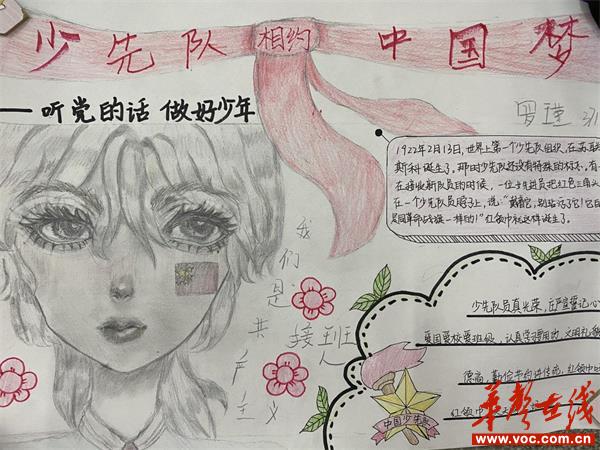 少先队 相约 中国梦
——听党的话 做好少年
罗瑾
1922年2月13日,世界上第一个少先队组织,在苏联
斯科诞生了。那时少先队还没有特殊的标示。有一
在接收新队员的时候,一位女党员把红色三角头
在一个少先队员脖子上,说:"戴着它,别玷污了它!它的
是同革命战旗一样的!"红领巾就这样诞生了。
我们是
共产主义
接班人
少先队员真光荣,庄严宣誓记心
爱国爱校爱班级,认真学习有用功,文明礼貌
德高,勤俭节约讲传统,红领巾
红领巾
中国少先队
华声在线
www.voc.com.cn